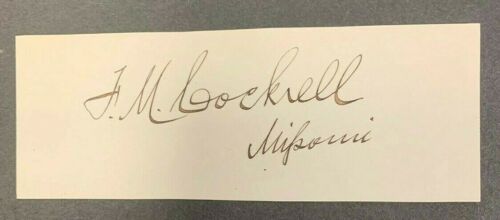 F. M. Cockrell
Missouri